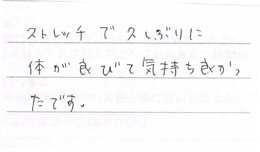 ストレッチで久しぶりに
体が良びて気持ち良かっ
たです。